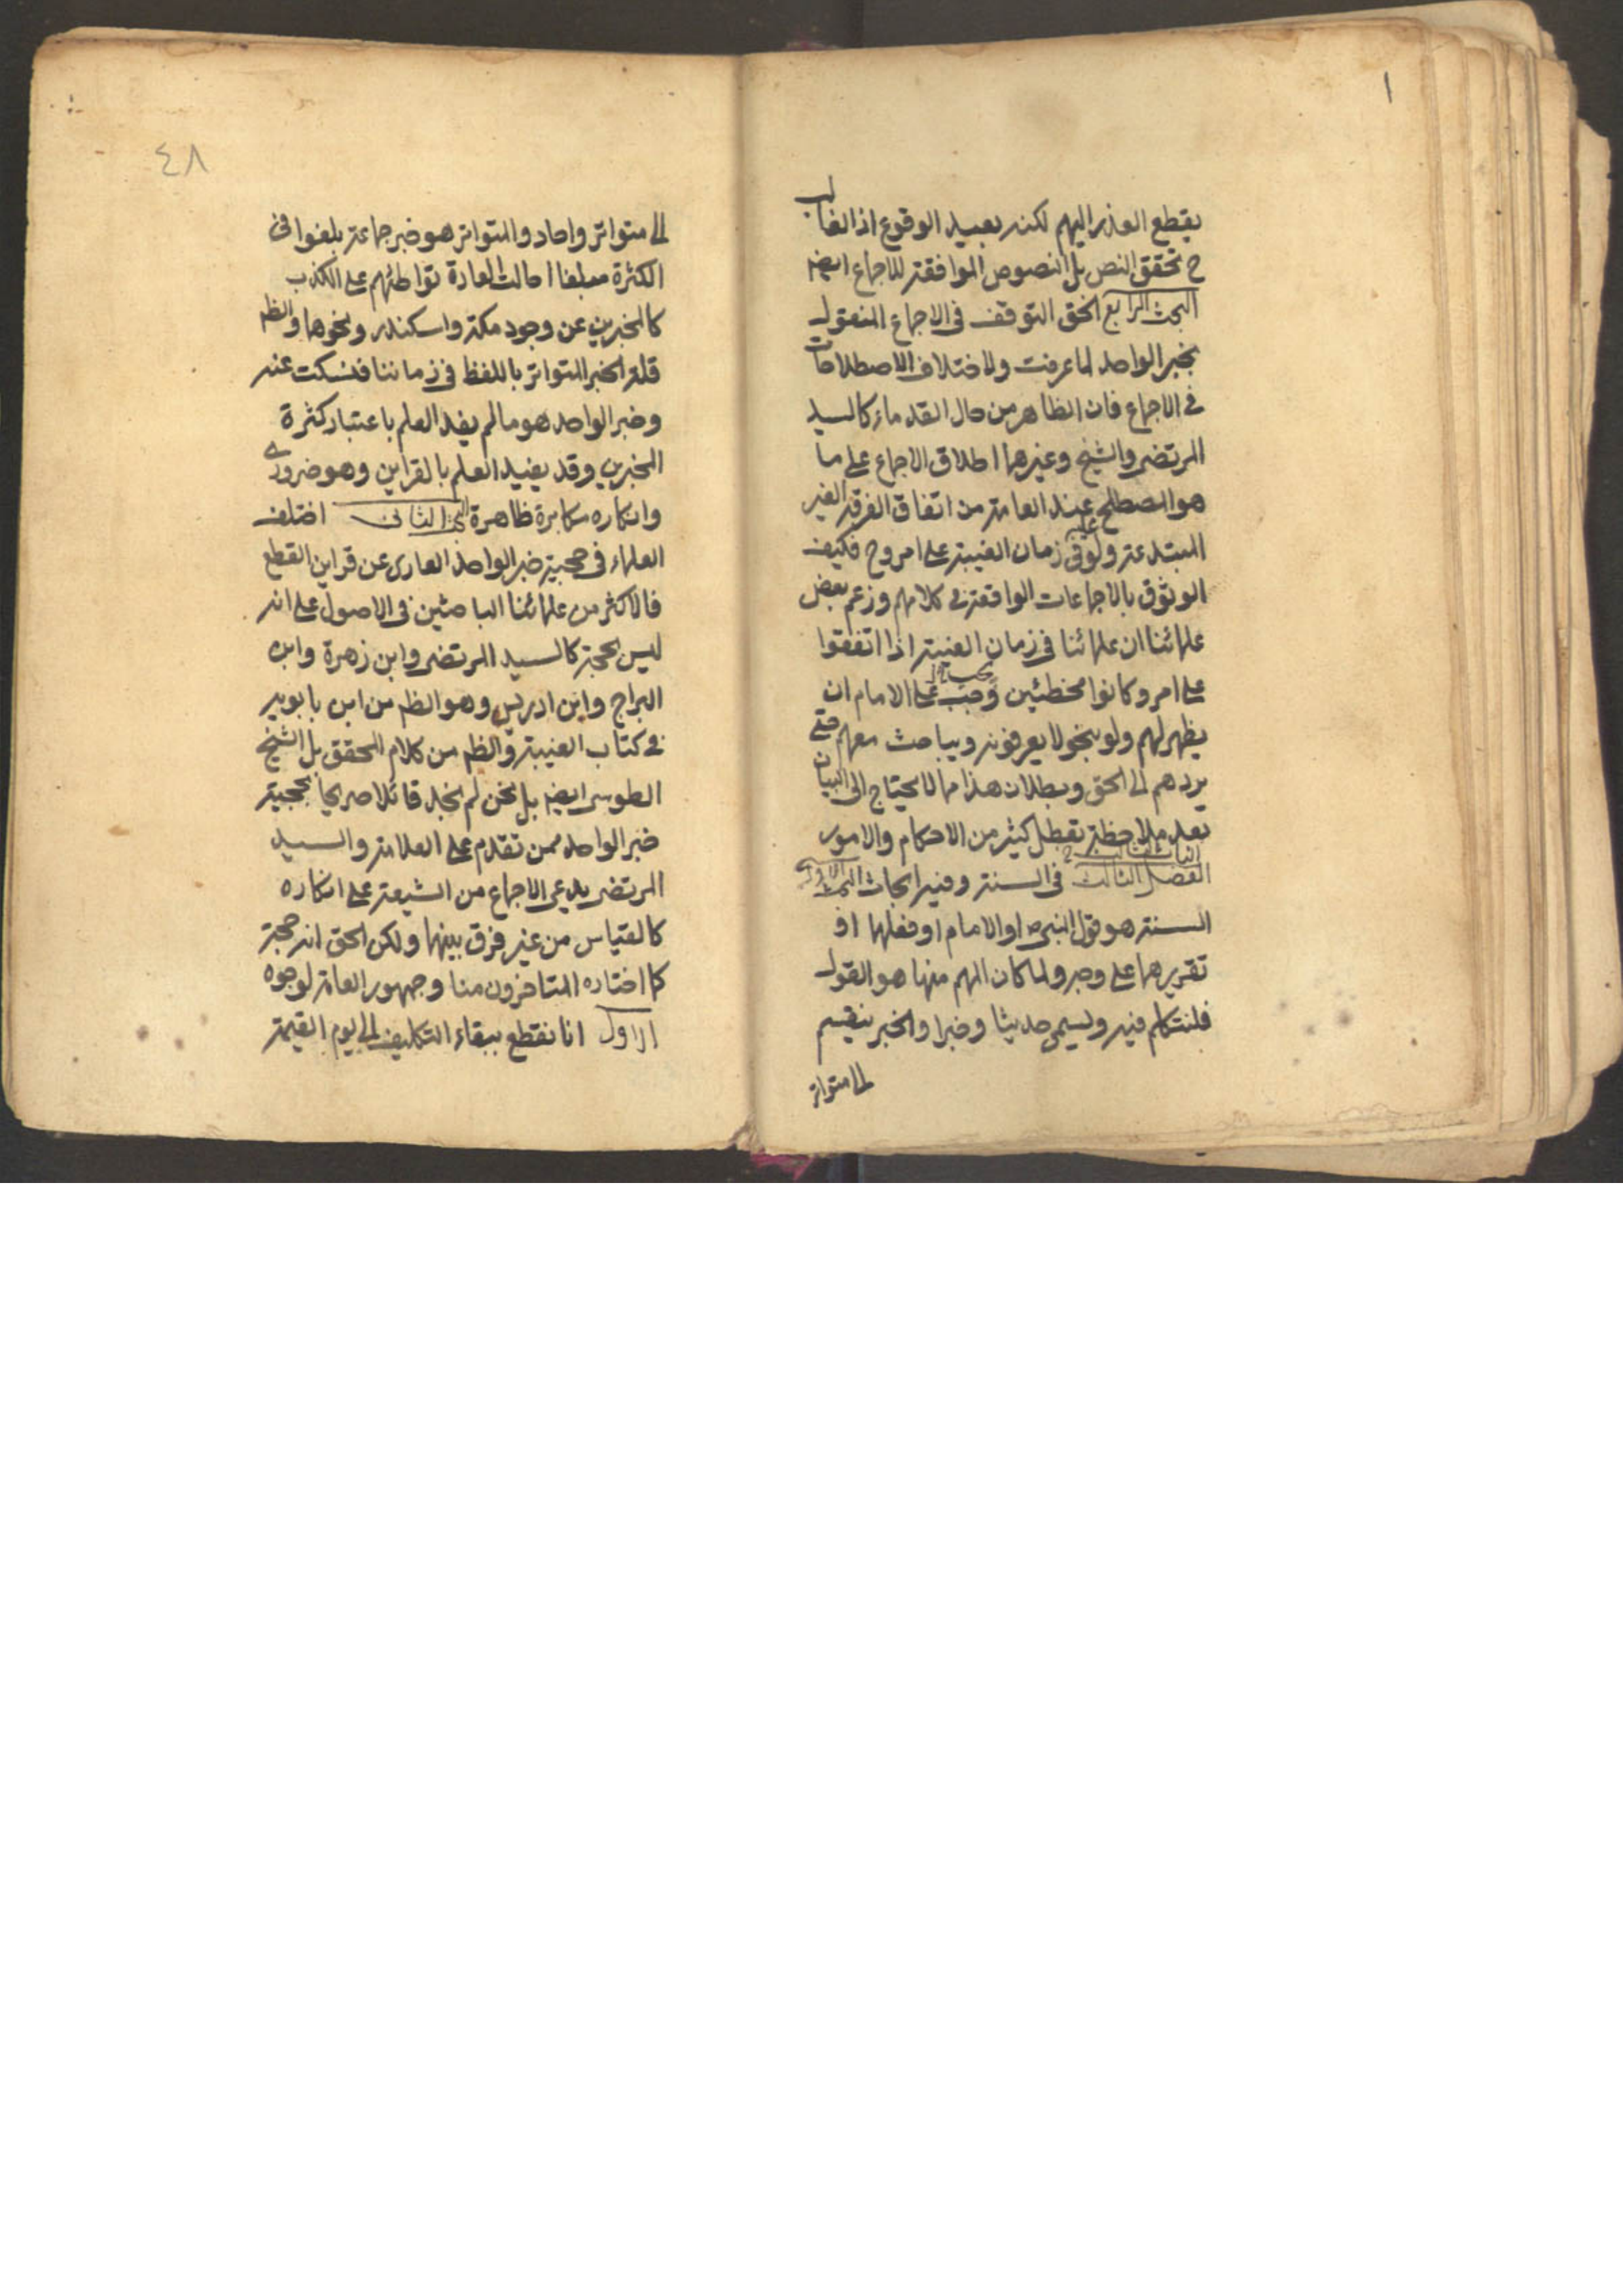 ١
يقطع العذر اليهم لكنه بعيد الوقوع اذ الغالب
ح تحقق النص بل النصوص الموافقة للاجماع ايضا
البحث الرابع الحق التوقف فى الاجماع المنقول
بخبر الواحد لما عرفت ولاختلاف الاصطلاحات
فى الاجماع فان الظاهر من حال القدماء كالسيد
المرتضى والشيخ وغيرهما اطلاق الاجماع على ما
هو المصطلح عند العامة من اتفاق الفرقة الغير
المبتدعة ولو فى زمان الغيبة على امر وح فكيف
الوثوق بالاجماعات الواقعة فى كلامهم وزعم بعض
علمائنا ان علمائنا فى زمان الغيبة اذا اتفقوا
على امر وكانوا مخطئين وجب على الامام ان
يظهر لهم ولو بنحو لا يعرفونه ويباحث معهم حتى
يردهم الى الحق وبطلان هذا مما لا يحتاج الى البيان
بعد ملاحظة تعطل كثير من الاحكام والامور
الفصل الثالث فى السنة وفيه ابحاث البحث الاول
السنة هو قول النبى ص او الامام او فعلهما او
تقريرهما على وجه ولما كان المهم منها هو القول
فلنتكلم فيه ويسمى حديثا وخبرا والخبر ينقسم
الى متواتر
٤٨
الى متواتر واحاد والمتواتر هو خبر جماعة بلغوا فى
الكثرة مبلغا احالت العادة تواطئهم على الكذب
كالمخبرين عن وجود مكة واسكندر ونحوها والظم
قلة الخبر المتواتر باللفظ فى زماننا فنسكت عنه
وخبر الواحد هو مالم يفد العلم باعتبار كثرة
المخبرين وقد يفيد العلم بالقراين وهو ضرورى
وانكاره مكابرة ظاهرة البحث الثانى اختلف
العلماء فى حجية خبر الواحد العارى عن قراين القطع
فالاكثر من علمائنا الباحثين فى الاصول على انه
ليس بحجة كالسيد المرتضى وابن زهرة وابن
البراج وابن ادريس وهو الظم من ابن بابويه
فى كتاب الغيبة والظم من كلام المحقق بل الشيخ
الطوسى ايضا بل نحن لم نجد قائلا صريحا بحجية
خبر الواحد ممن تقدم على العلامة والسيد
المرتضى يدعى الاجماع من الشيعة على انكاره
كالقياس من غير فرق بينهما ولكن الحق انه حجة
كما اختاره المتاخرون منا وجمهور العامة لوجوه
الاول انا نقطع ببقاء التكليف الى يوم القيمة